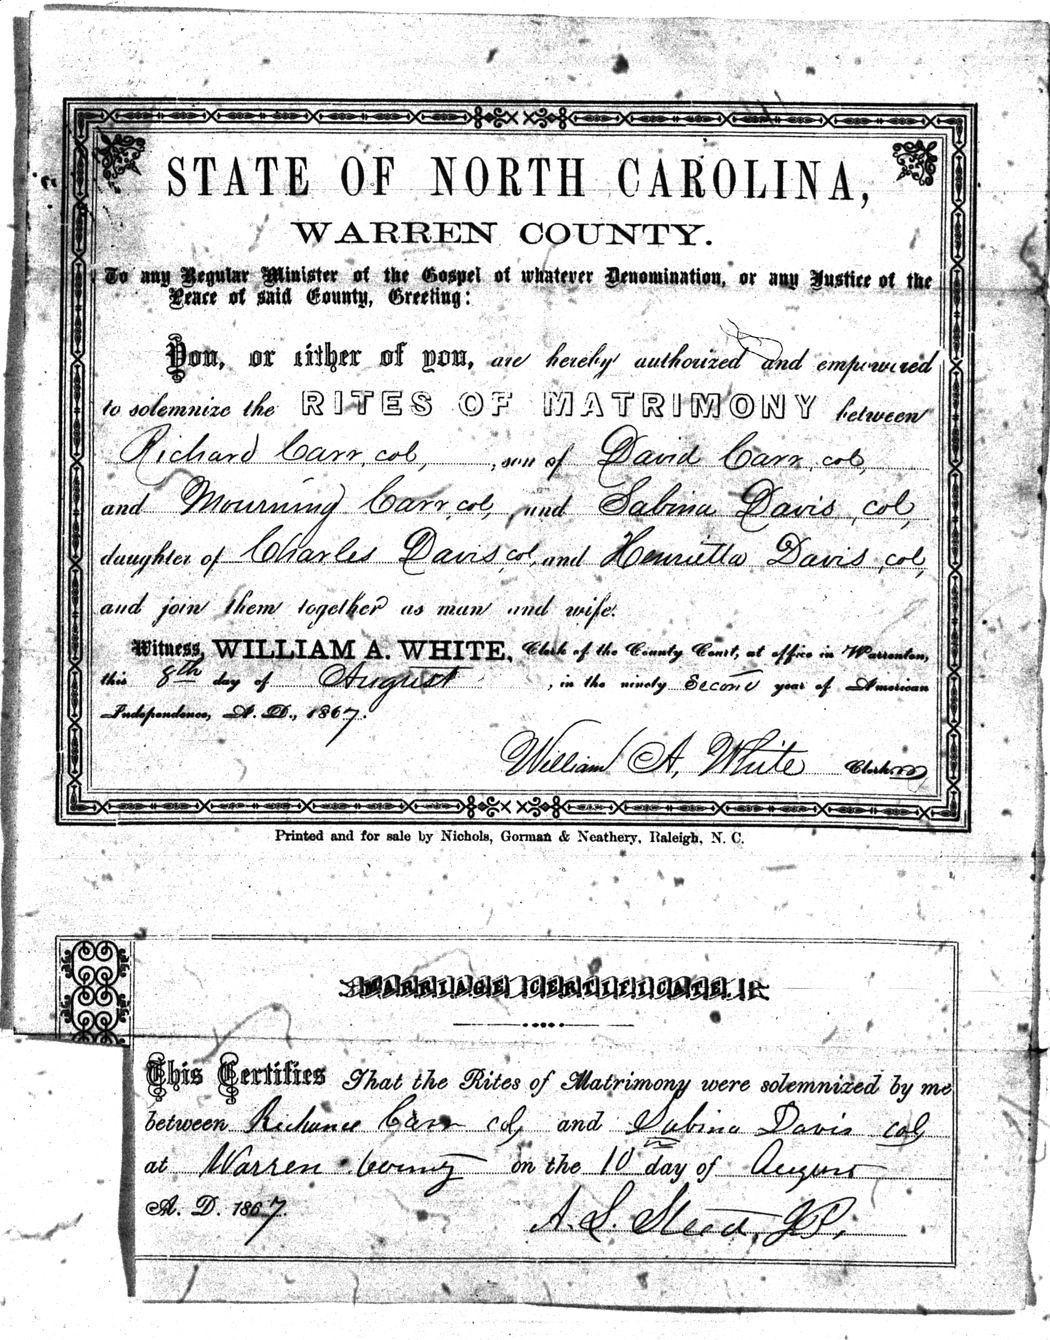 STATE OF NORTH CAROLINA,
WARREN COUNTY.
To any Regular Minister of the Gospel of whatever Denomination, or any Justice of the
Peace of said County, Greeting:
You, or either of you, are hereby authorized and empowered
to solemnize the RITES OF MATRIMONY between
Richard Carr, col, , son of David Carr, col,
and Mourning Carr, col, , and Sabina Davis, col,
daughter of Charles Davis, col, and Henrietta Davis, col,
and join them together as man and wife.
Witness, WILLIAM A. WHITE, Clerk of the County Court, at office in Warrenton,
this 8th day of August , in the ninety Second year of American
Independence, A. D., 1867.
William A. White Clerk
Printed and for sale by Nichols, Gorman & Neathery, Raleigh, N. C.
MARRIAGE CERTIFICATE.
This Certifies That the Rites of Matrimony were solemnized by me
between Richard Carr col, and Sabina Davis col,
at Warren County on the 10 day of August
A. D. 1867.
A. L. Steed, JP.